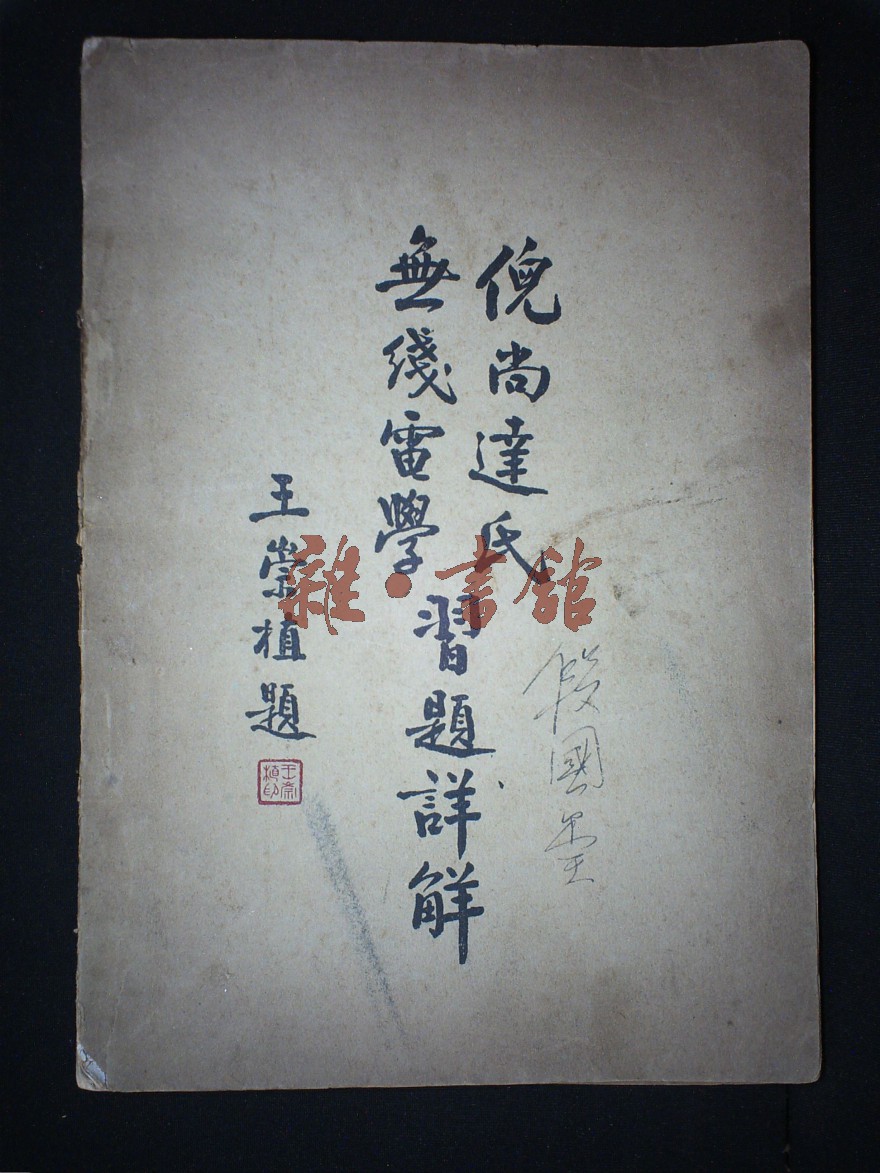 倪尚達氏
無綫電學
習題詳解
王崇植題
王崇植印
雜·書舘